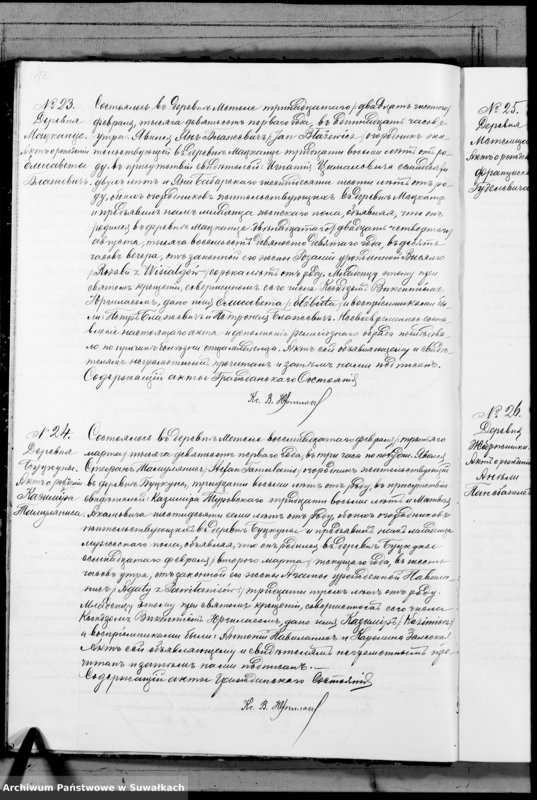 12
№ 23.
Деревня
Мацканце
Актъ о рожденіи
Елисавета
Блажевичъ.
Состоялось въ деревнѣ Метеле тринадцатаго / двадцать шестого /
февраля, тысяча девятьсотъ перваго года, въ часовъ
утра. Явился Янъ Блажевичъ / Jan Błażewicz / огородникъ
жительствующій въ деревнѣ Мацканце тридцати восьми лѣтъ отъ ро-
ду, въ присутствіи свидѣтелей: Игнатія
двухъ лѣтъ и шестидесяти шести лѣтъ отъ ро-
ду, обоихъ огородниковъ жительствующихъ въ деревнѣ Мацканце
и предъявилъ намъ младенца женскаго пола, объявляя, что онъ
родился въ деревнѣ Мацканце двѣнадцатаго / двадцать четвертаго /
августа, тысяча восемьсотъ девяносто девятаго года, въ десять
часовъ вечера, отъ законной его жены Розаліи урожденной
/ Rozali z / сорока лѣтъ отъ роду. Младенцу этому при
святомъ крещеніи, совершенномъ сего числа Ксёндзомъ Викентіемъ
дано имя Елисавета / Elżbieta / а воспріемниками бы-
ли Петръ Блажевичъ и Петронеля Блажевичъ. Несвоевременное соста-
вленіе настоящаго акта и дополненіе религіознаго обряда послѣдова-
ло по причинѣ отца младенца. Актъ сей объявляющему и свидѣ-
телямъ неграмотнымъ, прочитанъ и затѣмъ нами подписанъ.
Содержащій акты Гражданскаго Состоянія
Кс. В.
№ 24.
Деревня
Буцкуны.
Актъ о рожденіи
Казиміра
Состоялось въ деревнѣ Метеле восемнадцатаго февраля / третьяго
марта / тысяча девятьсотъ перваго года, въ три часа по полудни. Явился
Стефанъ / Stefan / огородникъ жительствующій
въ деревнѣ Буцкуны, тридцати восьми лѣтъ отъ роду, въ присутствіи
свидѣтелей: Казимира тридцати восьми лѣтъ и Матвѣя
шестидесяти семи лѣтъ отъ роду обоихъ огородниковъ
жительствующихъ въ деревнѣ Буцкуны и предъявилъ намъ младенца
мужескаго пола, объявляя, что онъ родился въ деревнѣ Буцкуны
семнадцатаго февраля / второго марта / текущаго года, въ шесть
часовъ утра, отъ законной его жены Агаты урожденной
/ Agaty z / тридцати трехъ лѣтъ отъ роду.
Младенцу этому при святомъ крещеніи, совершенномъ сего числа
Ксёндзомъ Викентіемъ дано имя Казиміръ / Kazimierz /
а воспріемниками были: Антоній и
Актъ сей объявляющему и свидѣтелямъ неграмотнымъ про-
читанъ и затѣмъ нами подписанъ.—
Содержащій акты гражданскаго Состоянія
Кс. В.
№ 25.
Деревня
Актъ о рожденіи
Францишка
№ 26.
Деревня
Актъ о рожденіи
Анели
Archiwum Państwowe w Suwałkach